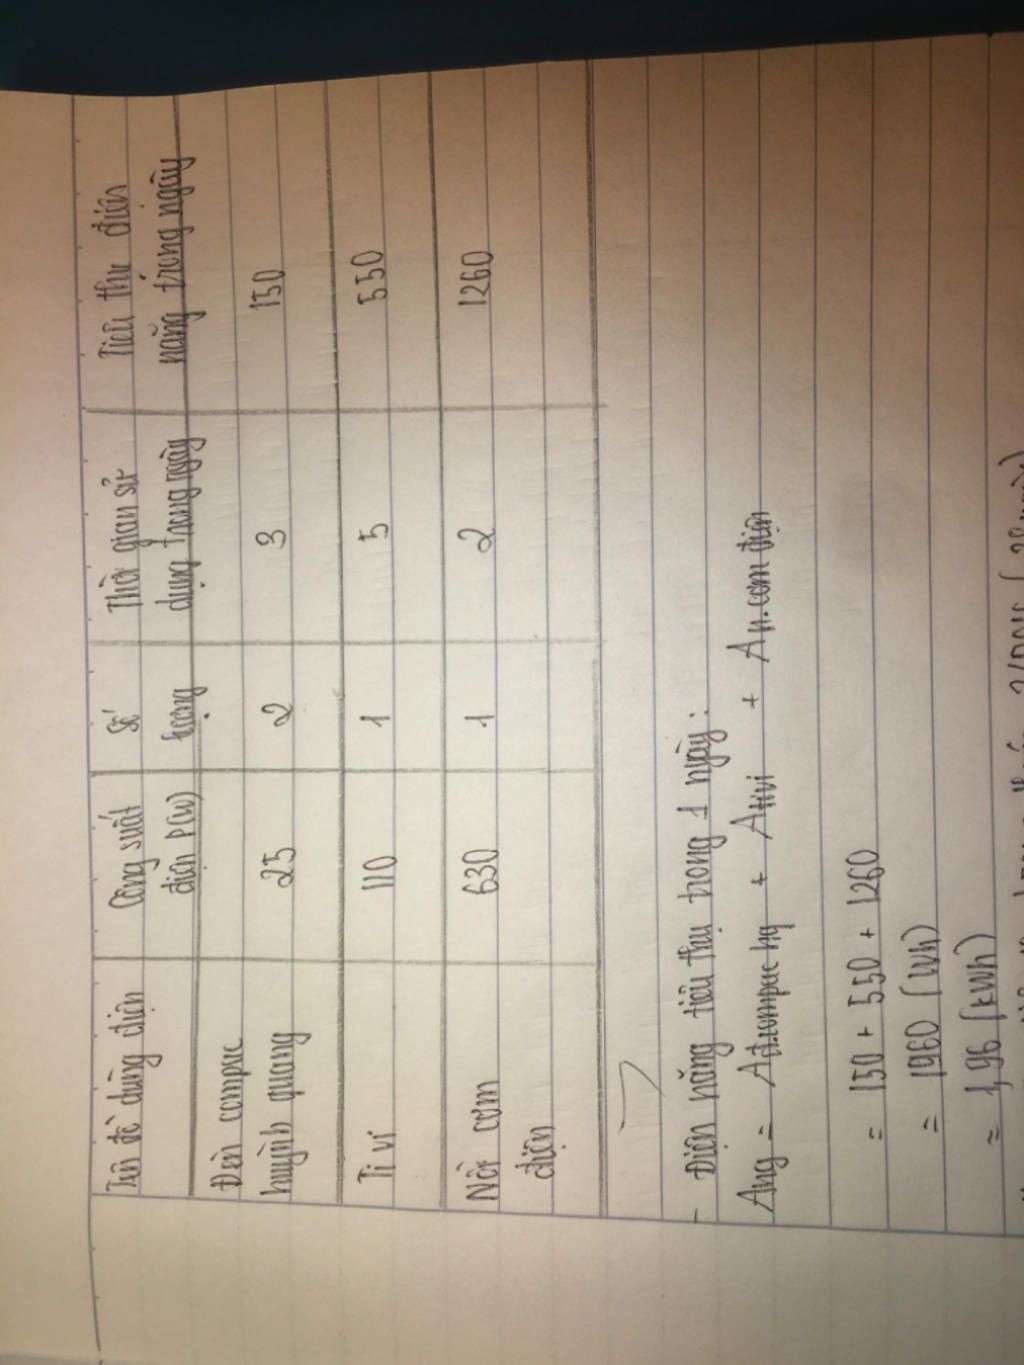 Tên đồ dùng điện
Công suất
điện P(W)
Số
lượng
Thời gian sử
dụng trong ngày
Tiêu thụ điện
năng trong ngày
Đèn compac
huỳnh quang
25
2
3
150
Ti vi
110
1
5
550
Nồi cơm
điện
630
1
2
1260
- Điện năng tiêu thụ trong 1 ngày:
Ang = Ađ.compac hq + Ativi + An.cơm điện
= 150 + 550 + 1260
= 1960 (Wh)
= 1,96 (kWh)